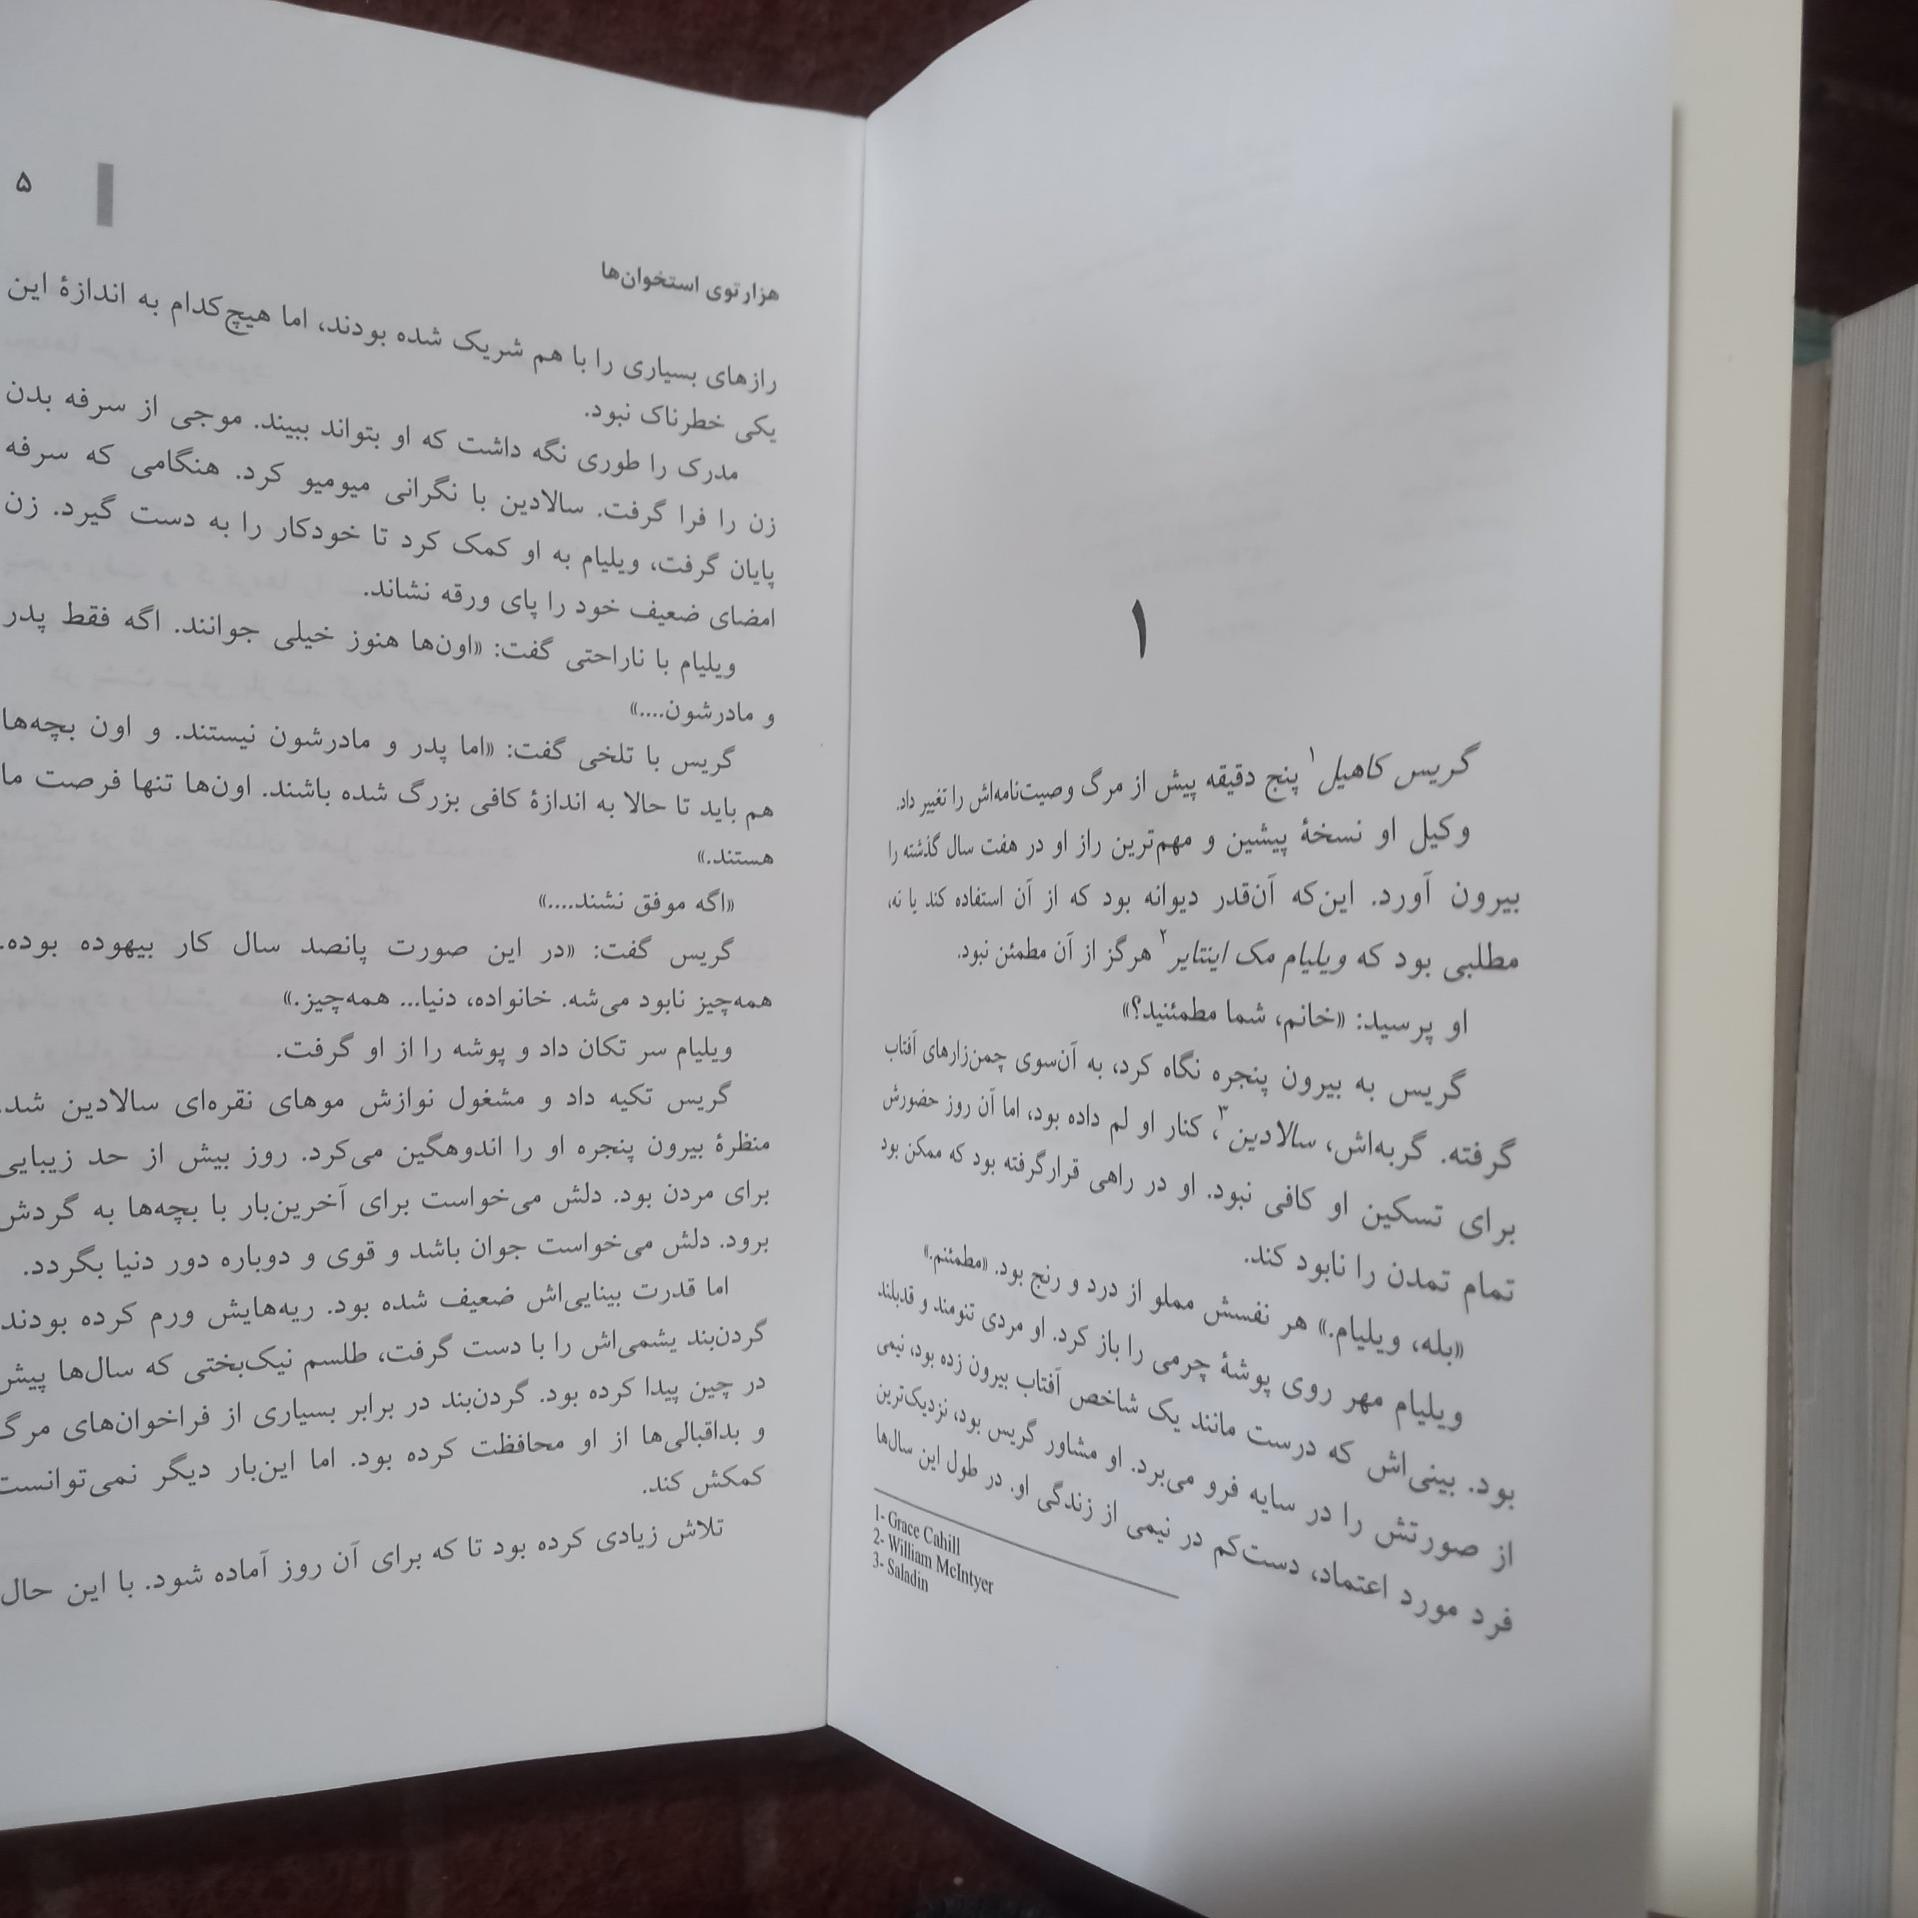 ۱
گریس کاهیل۱ پنج دقیقه پیش از مرگ وصیت‌نامه‌اش را تغییر داد.
وکیل او نسخهٔ پیشین و مهم‌ترین راز او در هفت سال گذشته را
بیرون آورد. این‌که آن‌قدر دیوانه بود که از آن استفاده کند یا نه،
مطلبی بود که ویلیام مک اینتایر۲ هرگز از آن مطمئن نبود.
او پرسید: «خانم، شما مطمئنید؟»
گریس به بیرون پنجره نگاه کرد، به آن‌سوی چمن‌زارهای آفتاب
گرفته. گربه‌اش، سالادین۳، کنار او لم داده بود، اما آن روز حضورش
برای تسکین او کافی نبود. او در راهی قرارگرفته بود که ممکن بود
تمام تمدن را نابود کند.
«بله، ویلیام.» هر نفسش مملو از درد و رنج بود. «مطمئنم.»
ویلیام مهر روی پوشهٔ چرمی را باز کرد. او مردی تنومند و قدبلند
بود. بینی‌اش که درست مانند یک شاخص آفتاب بیرون زده بود، نیمی
از صورتش را در سایه فرو می‌برد. او مشاور گریس بود، نزدیک‌ترین
فرد مورد اعتماد، دست‌کم در نیمی از زندگی او. در طول این سال‌ها
1- Grace Cahill
2- William McIntyer
3- Saladin
۵
هزارتوی استخوان‌ها
رازهای بسیاری را با هم شریک شده بودند، اما هیچ‌کدام به اندازهٔ این
یکی خطرناک نبود.
مدرک را طوری نگه داشت که او بتواند ببیند. موجی از سرفه بدن
زن را فرا گرفت. سالادین با نگرانی میومیو کرد. هنگامی که سرفه
پایان گرفت، ویلیام به او کمک کرد تا خودکار را به دست گیرد. زن
امضای ضعیف خود را پای ورقه نشاند.
ویلیام با ناراحتی گفت: «اون‌ها هنوز خیلی جوانند. اگه فقط پدر
و مادرشون....»
گریس با تلخی گفت: «اما پدر و مادرشون نیستند. و اون بچه‌ها
هم باید تا حالا به اندازهٔ کافی بزرگ شده باشند. اون‌ها تنها فرصت ما
هستند.»
«اگه موفق نشند....»
گریس گفت: «در این صورت پانصد سال کار بیهوده بوده.
همه‌چیز نابود می‌شه. خانواده، دنیا... همه‌چیز.»
ویلیام سر تکان داد و پوشه را از او گرفت.
گریس تکیه داد و مشغول نوازش موهای نقره‌ای سالادین شد.
منظرهٔ بیرون پنجره او را اندوهگین می‌کرد. روز بیش از حد زیبایی
برای مردن بود. دلش می‌خواست برای آخرین‌بار با بچه‌ها به گردش
برود. دلش می‌خواست جوان باشد و قوی و دوباره دور دنیا بگردد.
اما قدرت بینایی‌اش ضعیف شده بود. ریه‌هایش ورم کرده بودند.
گردن‌بند یشمی‌اش را با دست گرفت، طلسم نیک‌بختی که سال‌ها پیش
در چین پیدا کرده بود. گردن‌بند در برابر بسیاری از فراخوان‌های مرگ
و بداقبالی‌ها از او محافظت کرده بود. اما این‌بار دیگر نمی‌توانست
کمکش کند.
تلاش زیادی کرده بود تا که برای آن روز آماده شود. با این حال